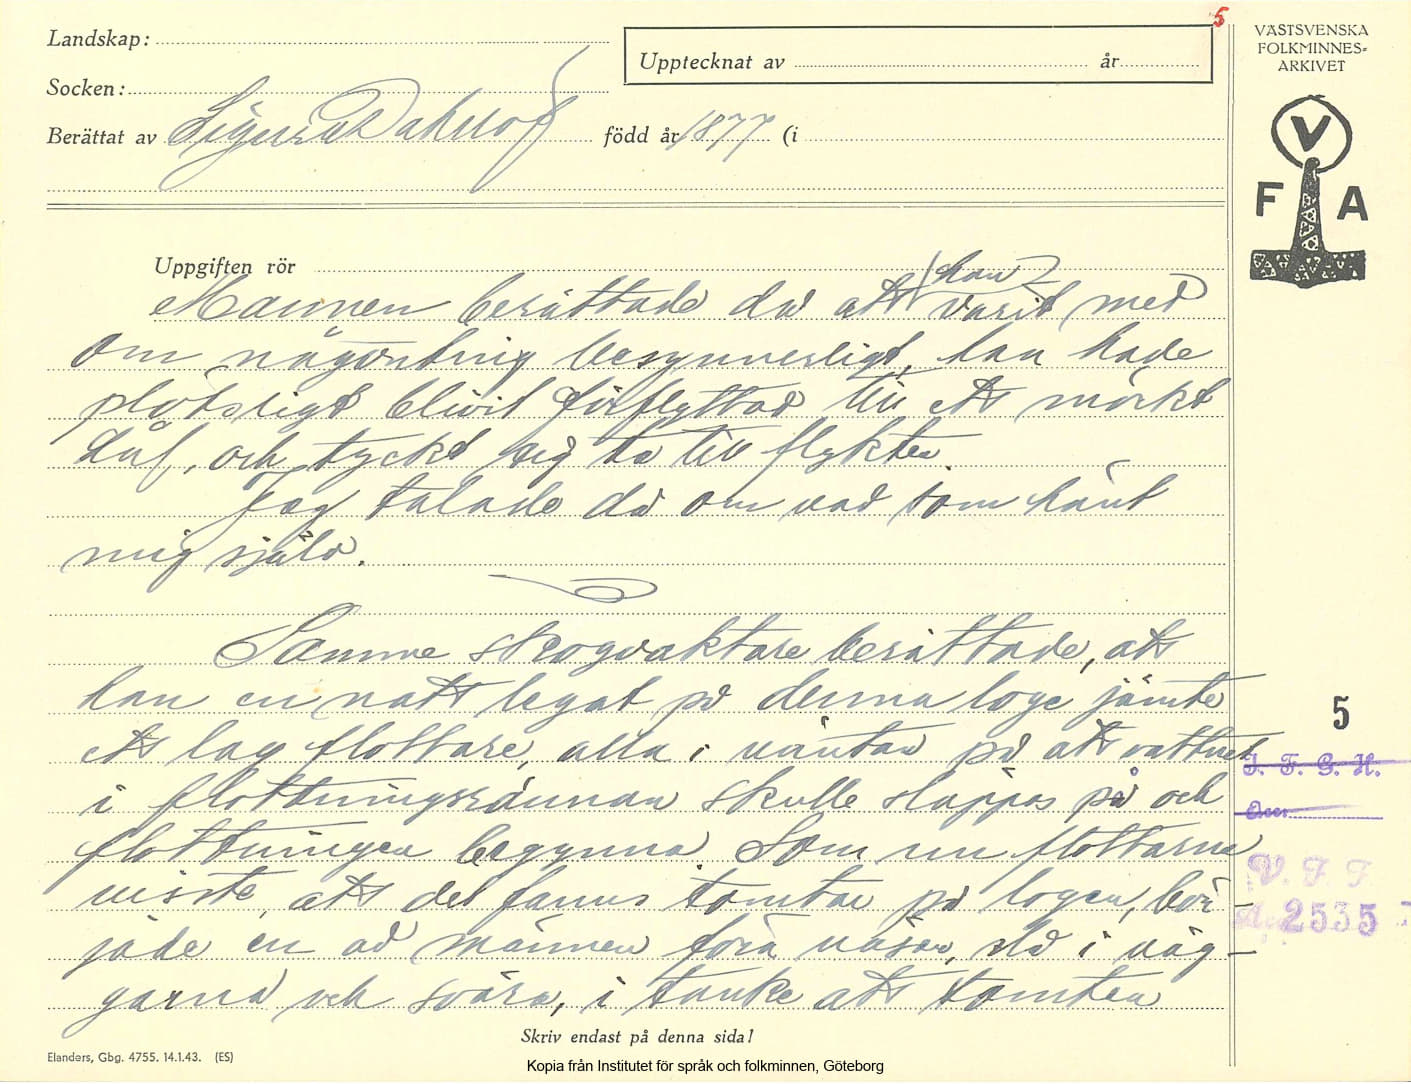 5
Landskap:
Upptecknat av år
Socken:
Berättat av Signe Dahllöf född år 1877 (i
VÄSTSVENSKA
FOLKMINNES-
ARKIVET
V
F A
Uppgiften rör
han
Mannen berättade då att varit med
om någonting besynnerligt, han hade
plötsligt blivit förflyttad till ett mörkt
hål, och tyckt sig ta till flykten.
Jag talade då om vad som hänt
mig själv.
Samme skogvaktare berättade, att
han en natt legat på denna loge jämte
ett lag flottare, alla i väntan på att vattnet
i flottningsrännan skulle släppas på och
flottningen begynna. Som nu flottarna
visste, att det fanns tomtar på logen, bör-
jade en av männen föra väsen, slå i väg-
garna och svära, i tanke att tomten
5
I. F. G. H.
Acc.
V. F. F.
Acc. 2535
Skriv endast på denna sida!
Elanders, Gbg. 4755. 14.1.43. (ES)
Kopia från Institutet för språk och folkminnen, Göteborg